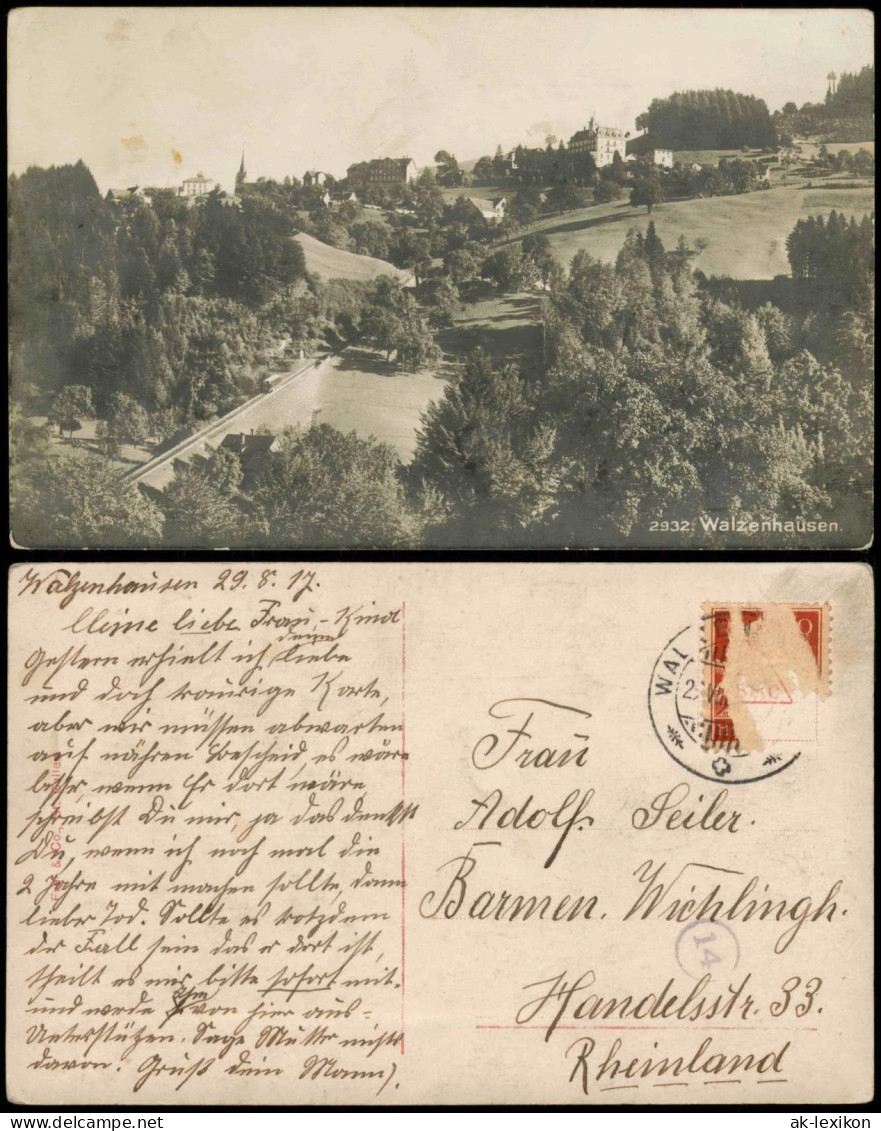 2932. Walzenhausen.
Walzenhausen 29.8.17.
Meine liebe Frau, - Kind
Gestern erhielt ich deine liebe
und doch traurige Karte,
aber wir müssen abwarten
auf nähren Bescheid, es wäre
besser, wenn Er dort wäre
schreibst Du mir, ja das denkst
Du, wenn ich noch mal die
2 Jahre mit machen sollte, dann
lieber Tod. Sollte es trotzdem
der Fall sein das er dort ist,
theilt es mir bitte sofort mit.
und werde ihm von hier aus=
Unterstützen. Sage Mutter nichts
davon. Gruß dein Mann
WAL
Frau
Adolf Seiler.
Barmen. Wichlingh.
14
Handelsstr. 33.
Rheinland
& Co.
ak-lexikon